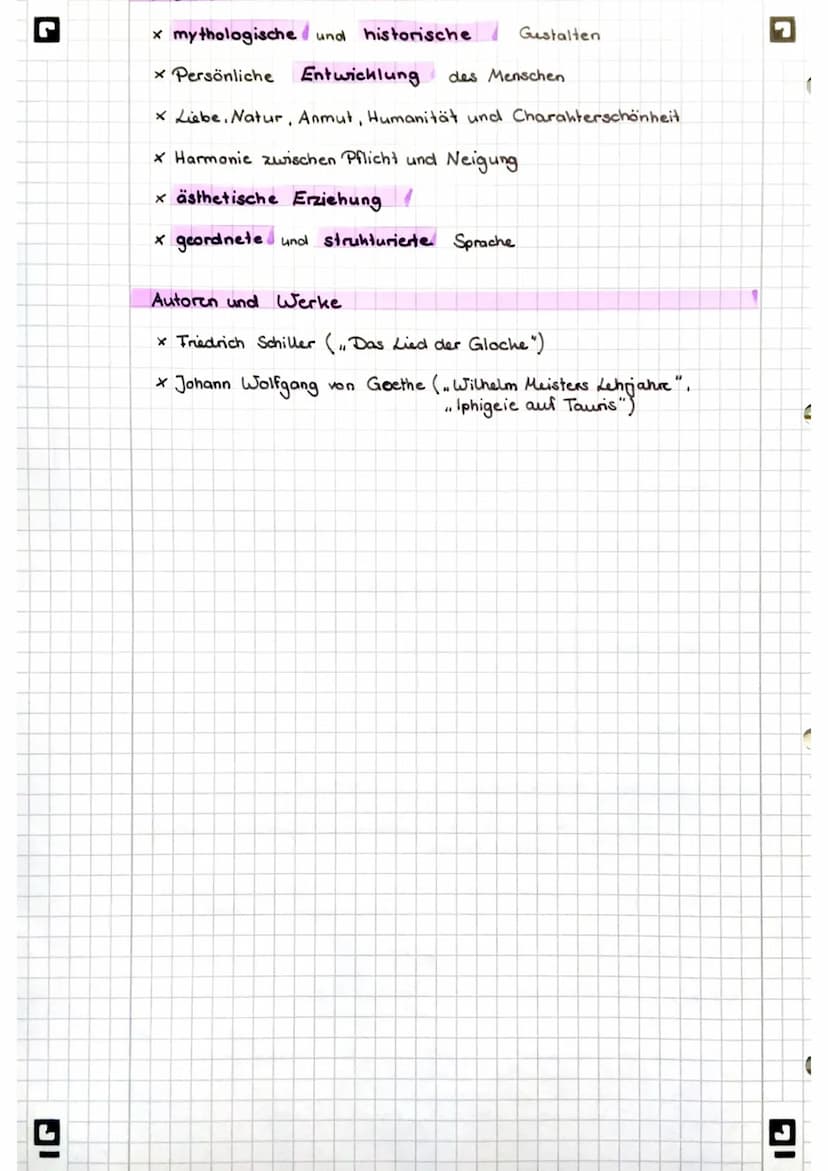 x mythologische und historische Gestalten
x Persönliche Entwicklung des Menschen
x Liebe, Natur, Anmut, Humanität und Charakterschönheit
x Harmonie zwischen Pflicht und Neigung
x ästhetische Erziehung
x geordnete und strukturierte Sprache
Autoren und Werke
x Friedrich Schiller („Das Lied der Glocke")
x Johann Wolfgang von Goethe („Wilhelm Meisters Lehrjahre",
„Iphigeie auf Tauris")